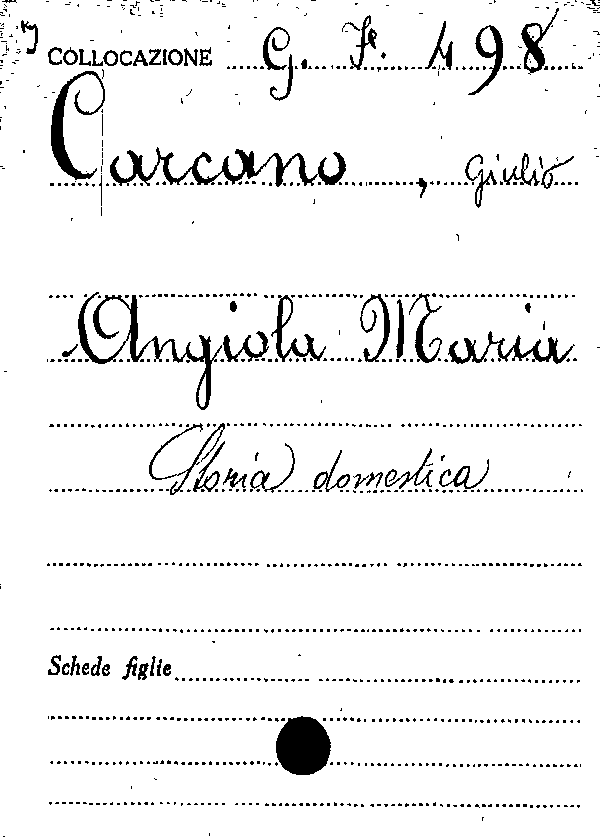 COLLOCAZIONE G. Fe. 498
Carcano, Giulio
Angiola Maria
Storia domestica
Schede figlie